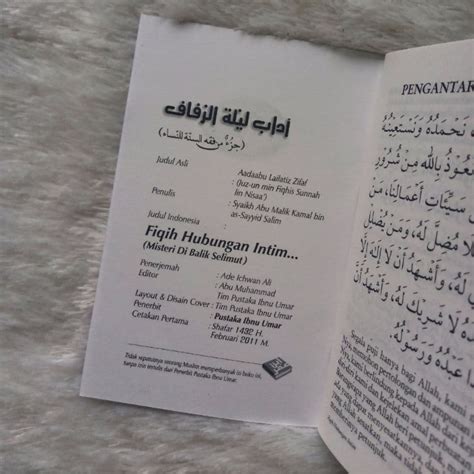 آداب ليلة الزفاف
(جزء من فقه السنة للنساء)
Judul Asli : Aadaabu Lailatiz Zifaf
(Juz-un min Fiqhis Sunnah
lin Nisaa')
Penulis : Syaikh Abu Malik Kamal bin
as-Sayyid Salim
Judul Indonesia :
Fiqih Hubungan Intim...
(Misteri Di Balik Selimut)
Penerjemah : Ade Ichwan Ali
Editor : Abu Muhammad
Tim Pustaka Ibnu Umar
Layout & Disain Cover : Tim Pustaka Ibnu Umar
Penerbit : Pustaka Ibnu Umar
Cetakan Pertama : Shafar 1432 H.
Februari 2011 M.
Tidak sepatutnya seorang Muslim memperbanyak isi buku ini,
tanpa izin tertulis dari Penerbit Pustaka Ibnu Umar.
PENGANTAR
نَحْمَدُهُ وَنَسْتَعِيْنُهُ
نَعُوْذُ بِاللهِ مِنْ شُرُوْرِ
سَيِّئَاتِ أَعْمَالِنَا، مَنْ
فَلَا مُضِلَّ لَهُ، وَمَنْ يُضْلِلْ
لَا إِلٰهَ إِلَّا
لَا شَرِيْكَ لَهُ، وَأَشْهَدُ
عَبْدُهُ وَرَسُوْلُهُ.
Segala puji hanya bagi Allah, kami